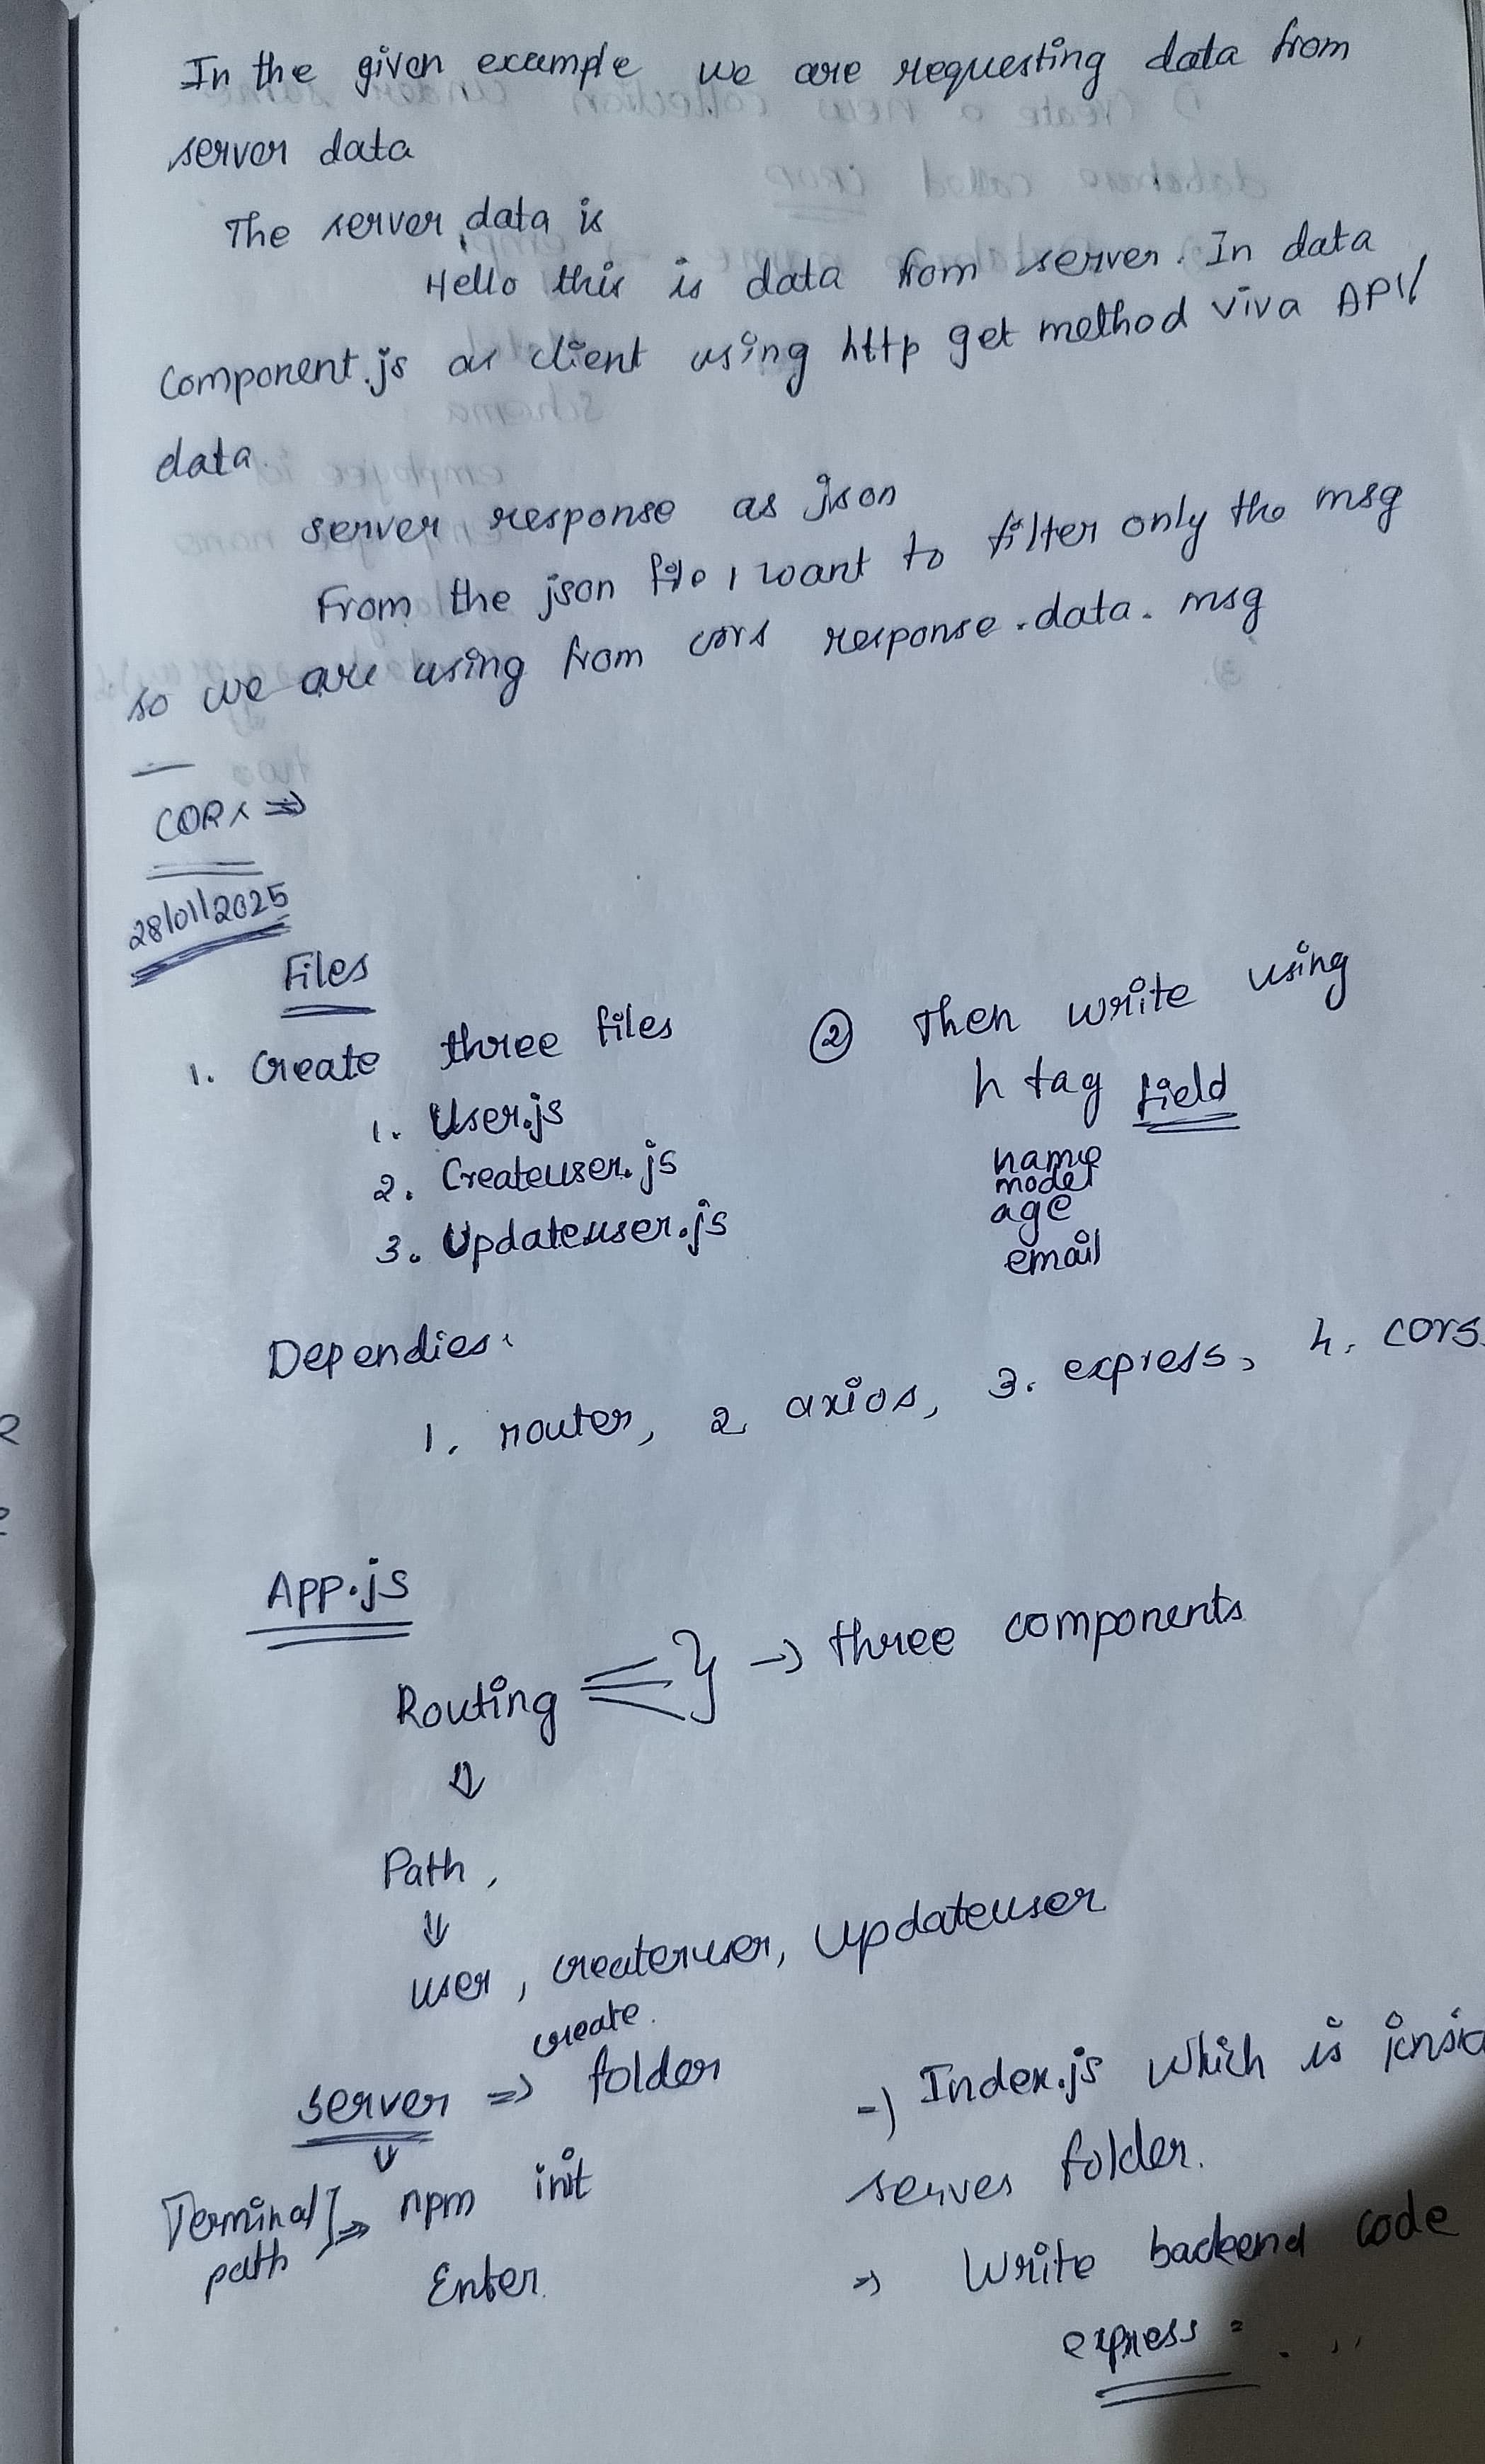 In the given example we are requesting data from
server data
The server data is
Hello this is data from server. In data
component.js as client using http get method viva API/
data.
server response as json
From the json file I want to filter only the msg
so we are using from cors response.data.msg
CORS ⇒
28/01/2025
Files
1. Create three files
1. User.js
2. Createuser.js
3. Updateuser.js
② Then write using
h tag field
name
model
age
email
Dependies:
1. router, 2. axios, 3. express, 4. cors.
App.js
Routing } → three components
⇓
Path,
⇓
user, createruser, updateuser
create.
server ⇒ folder
⇓
Terminal] ⇒ npm init
path
Enter.
→ Index.js which is insid
server folder.
⇒ Write backend code
express